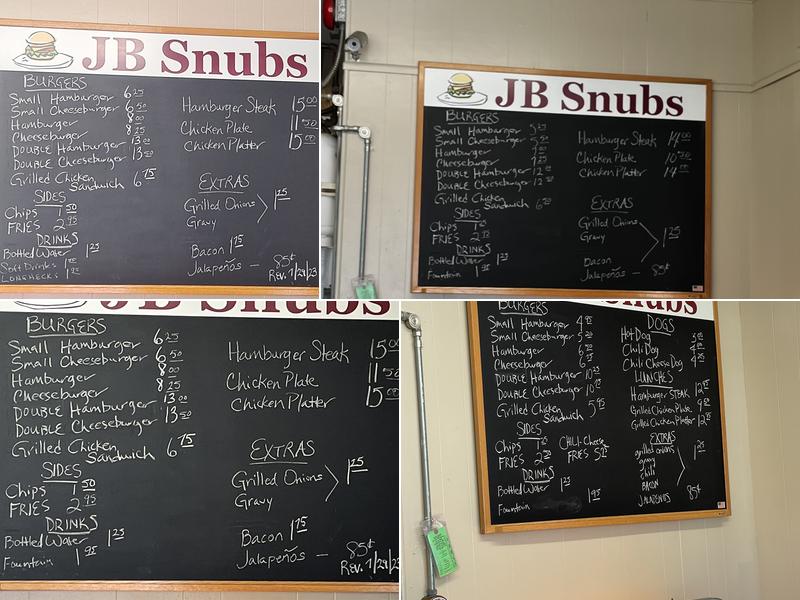 JB Snubs
BURGERS
Small Hamburger 6 25
Small Cheeseburger 6 50
Hamburger 8 00
Cheeseburger 8 25
DOUBLE Hamburger 13 00
DOUBLE Cheeseburger 13 50
Grilled Chicken
Sandwich 6 75
SIDES
Chips 1 50
FRIES 2 95
DRINKS
Bottled Water 1 25
Soft Drinks
LONGNECKS
Hamburger Steak 15 00
Chicken Plate 11 50
Chicken Platter 15 00
EXTRAS
Grilled Onions
Gravy
1 25
Bacon 1 75
Jalapeños — 85¢
Rev. 1/29/23
JB Snubs
BURGERS
Small Hamburger
Small Cheeseburger
Hamburger
Cheeseburger
DOUBLE Hamburger
DOUBLE Cheeseburger
Grilled Chicken
Sandwich
SIDES
Chips
FRIES
DRINKS
Bottled Water 1 25
Fountain 1 95
Hamburger Steak 14 00
Chicken Plate 10 50
Chicken Platter 14 00
EXTRAS
Grilled Onions
Gravy
1 25
Bacon
Jalapeños — 85¢
JB Snubs
BURGERS
Small Hamburger 6 25
Small Cheeseburger 6 50
Hamburger 8 00
Cheeseburger 8 25
DOUBLE Hamburger 13 00
DOUBLE Cheeseburger 13 50
Grilled Chicken
Sandwich 6 75
SIDES
Chips 1 50
FRIES 2 95
DRINKS
Bottled Water 1 25
Fountain 1 95
Hamburger Steak 15 00
Chicken Plate 11 50
Chicken Platter 15 00
EXTRAS
Grilled Onions
Gravy
1 25
Bacon 1 75
Jalapeños — 85¢
Rev. 1/29/23
Snubs
BURGERS
Small Hamburger
Small Cheeseburger
Hamburger
Cheeseburger
DOUBLE Hamburger
DOUBLE Cheeseburger
Grilled Chicken
Sandwich
SIDES
Chips
FRIES
CHILI-Cheese
FRIES
DRINKS
Bottled Water 1 25
Fountain 1 95
DOGS
Hot Dog
Chili Dog
Chili Cheese Dog
LUNCHES
Hamburger STEAK
Grilled Chicken Plate
Grilled Chicken Platter
EXTRAS
grilled onions
gravy
chili
BACON
1 25
JALAPENOS 85¢